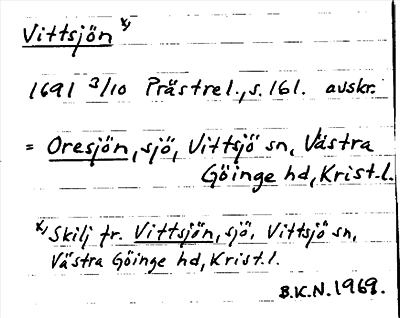 Vittsjön x)
1691 3/10 Prästrel., s. 161. avskr.
= Oresjön, sjö, Vittsjö sn, Västra
Göinge hd, Krist.l.
x) Skilj fr. Vittsjön, sjö, Vittsjö sn,
Västra Göinge hd, Krist.l.
B.K.N. 1969.